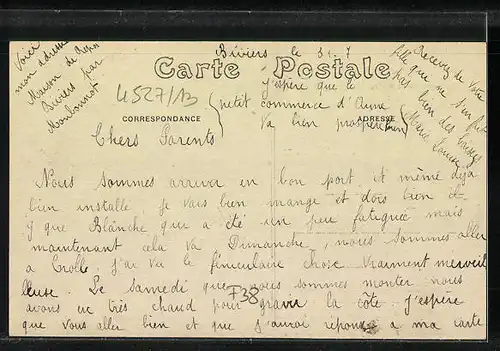 Biviers le 31. 7
Carte Postale
CORRESPONDANCE
ADRESSE
4527/13
Voici
mon adresse
Maison de Repos
Biviers par
Montbonnot
j'espère que le
petit commerce d'Anna
va bien
Recevez de votre
fille que
bien des baisers
Marie Louise
Chers Parents
Nous sommes arriver en bon port et même déjà
bien installé, je vais bien mange et dois bien il
y que Blanche qui a été un peu fatiguée mais
maintenant cela va Dimanche, nous sommes aller
a Crolle j'ai vu le finiculaire chose vraiment merveil
leuse. Le samedi que nous sommes monter nous
avons eu très chaud pour gravir la côte j'espère
que vous aller bien et que j'aurai réponse a ma carte
F38